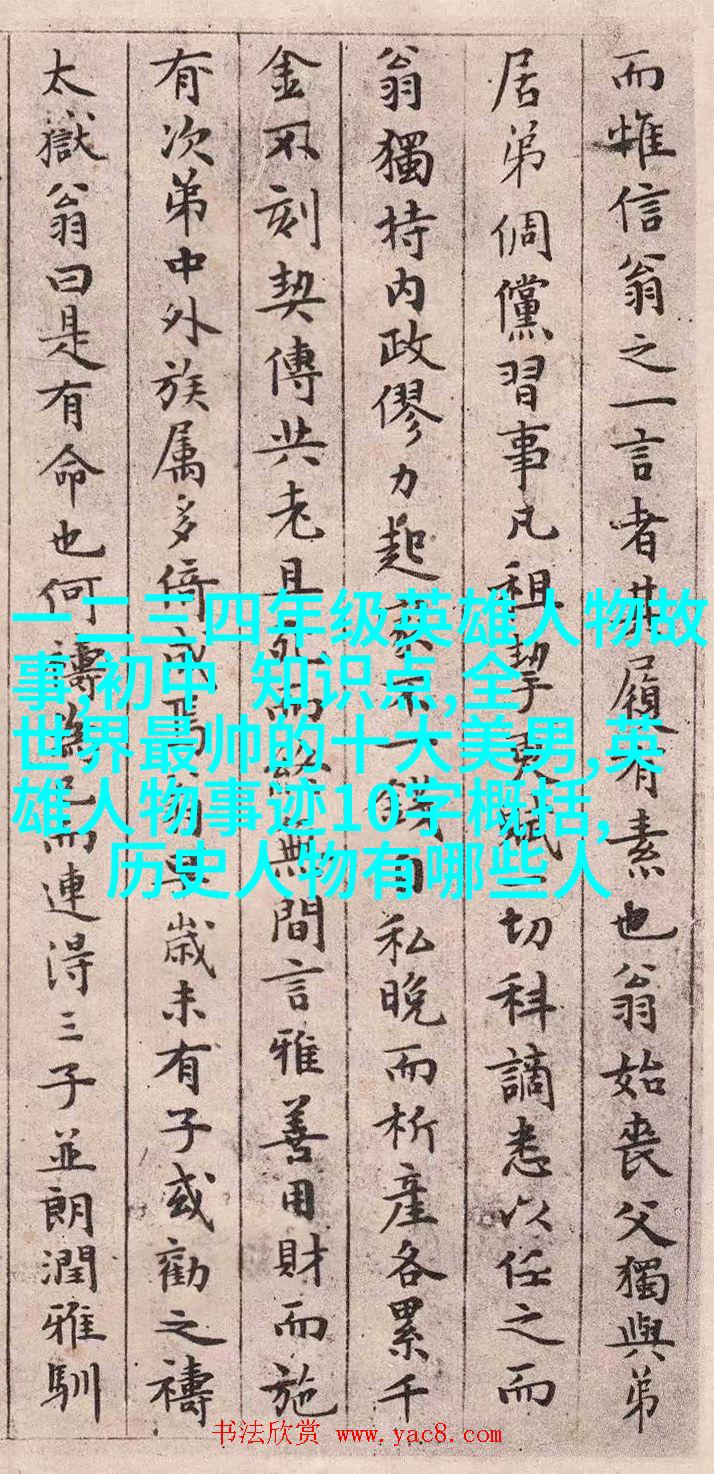 而惟信翁之一言者其履有素也翁始喪父獨與弟
居弟倜儻習事凡租挈更賦一切科謫悉以任之而
翁獨持内政僇力起家不一錢自私晚而析產各累千
金不刻契傳共老且死而終無間言雅善用財而施
有次弟中外族属多倚成焉
歲未有子或勸之禱
太嶽翁曰是有命也何禱為
而連得三子並朗潤雅馴
一二三四年级英雄人物故
事,初中 知识点,全
世界最帅的十大美男,英
雄人物事迹10字概括,
历史人物有哪些人
书法欣赏 www.yac8.com